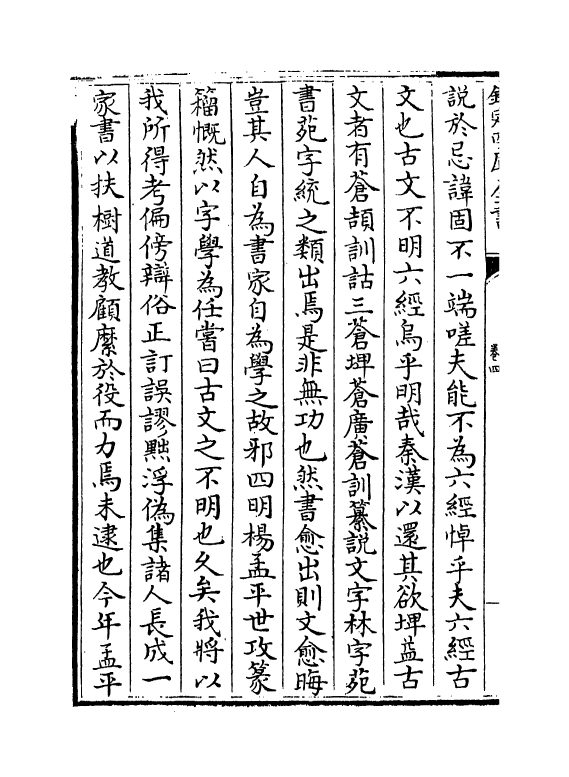 說於忌諱固不一端嗟夫能不為六經悼乎夫六經古
文也古文不明六經烏乎明哉秦漢以還其欲埤益古
文者有蒼頡訓詁三蒼埤蒼廣蒼訓纂說文字林字苑
書苑字統之類出焉是非無功也然書愈出則文愈晦
豈其人自為書家自為學之故邪四明楊孟平世攻篆
籀慨然以字學為任嘗曰古文之不明也久矣我將以
我所得考偏傍辯俗正訂誤謬黜浮偽集諸人長成一
家書以扶樹道教顧縻於役而力焉未逮也今年孟平
卷四